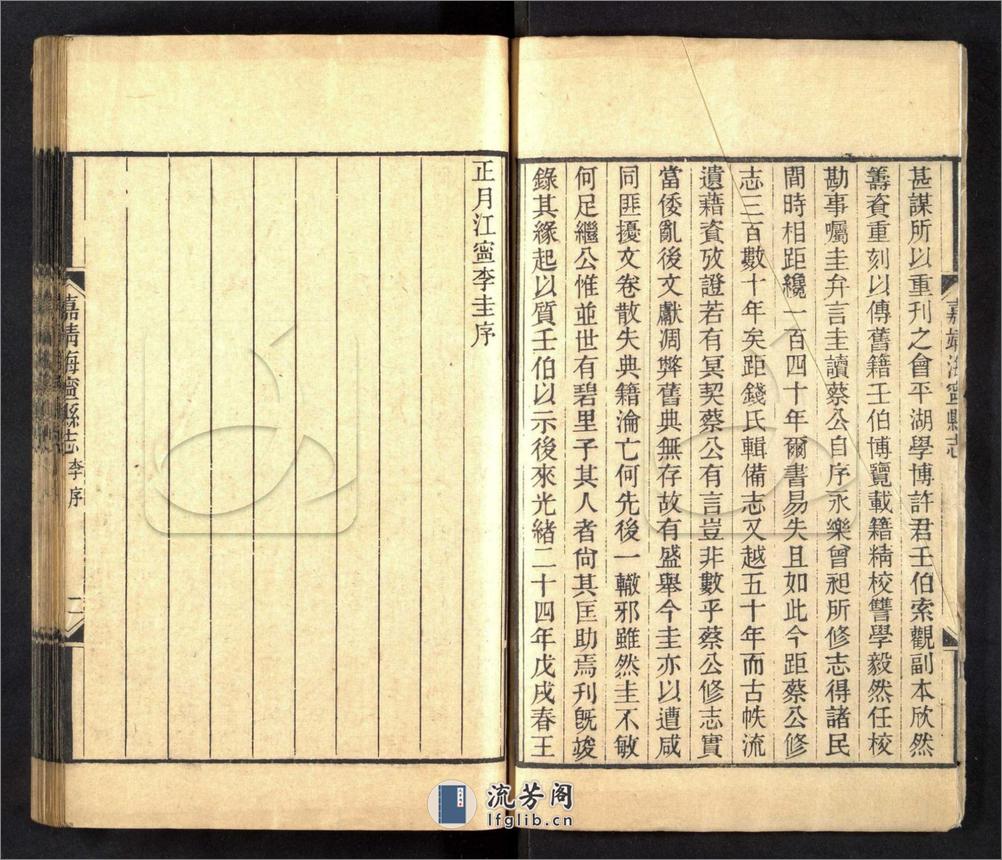 甚謀所以重刊之會平湖學博許君壬伯索觀副本欣然
籌資重刻以傳舊籍壬伯博覽載籍精校讐學毅然任校
勘事囑圭弁言圭讀蔡公自序永樂曾昶所修志得諸民
間時相距纔一百四十年爾書易失且如此今距蔡公修
志三百數十年矣距錢氏輯備志又越五十年而古帙流
遺藉資攷證若有冥契蔡公有言豈非數乎蔡公修志實
當倭亂後文獻凋弊舊典無存故有盛舉今圭亦以遭咸
同匪擾文卷散失典籍淪亡何先後一轍邪雖然圭不敏
何足繼公惟並世有碧里子其人者尙其匡助焉刊旣竣
錄其緣起以質壬伯以示後來光緒二十四年戊戌春王
嘉靖海寧縣志
正月江寧李圭序
嘉靖海寧縣志 李序 二
流芳阁
lfglib.cn